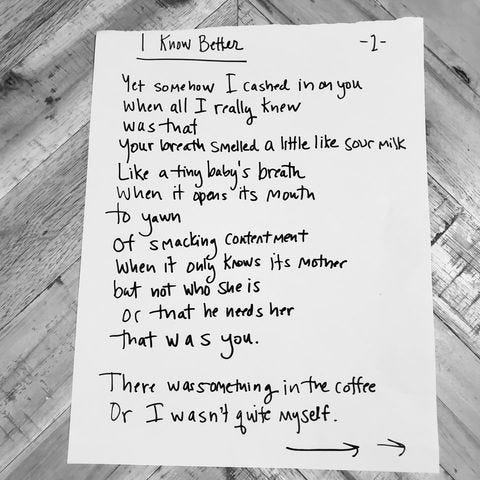 I Know Better -2-
Yet somehow I cashed in on you
When all I really knew
was that
Your breath smelled a little like sour milk
Like a tiny baby's breath
When it opens its mouth
to yawn
Of smacking contentment
When it only knows its mother
but not who she is
or that he needs her
that was you.
There was something in the coffee
Or I wasn't quite myself.